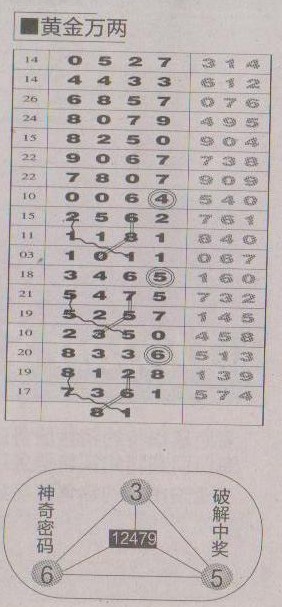 ■黄金万两
14 0 5 2 7 3 1 4
14 4 4 3 3 6 1 2
26 6 8 5 7 0 7 6
24 8 0 7 9 4 9 5
15 8 2 5 0 9 0 4
22 9 0 6 7 7 3 8
22 7 8 0 7 9 0 9
10 0 0 6 4 5 4 0
15 2 5 6 2 7 6 1
11 1 1 8 1 8 4 0
03 1 0 1 1 0 6 7
18 3 4 6 5 1 6 0
21 5 4 7 5 7 3 2
19 5 2 5 7 1 4 5
10 2 3 5 0 4 5 8
20 8 3 3 6 5 1 3
19 8 1 2 8 1 3 9
17 7 3 6 1 5 7 4
8 1
神奇密码
破解中奖
3
12479
6
5